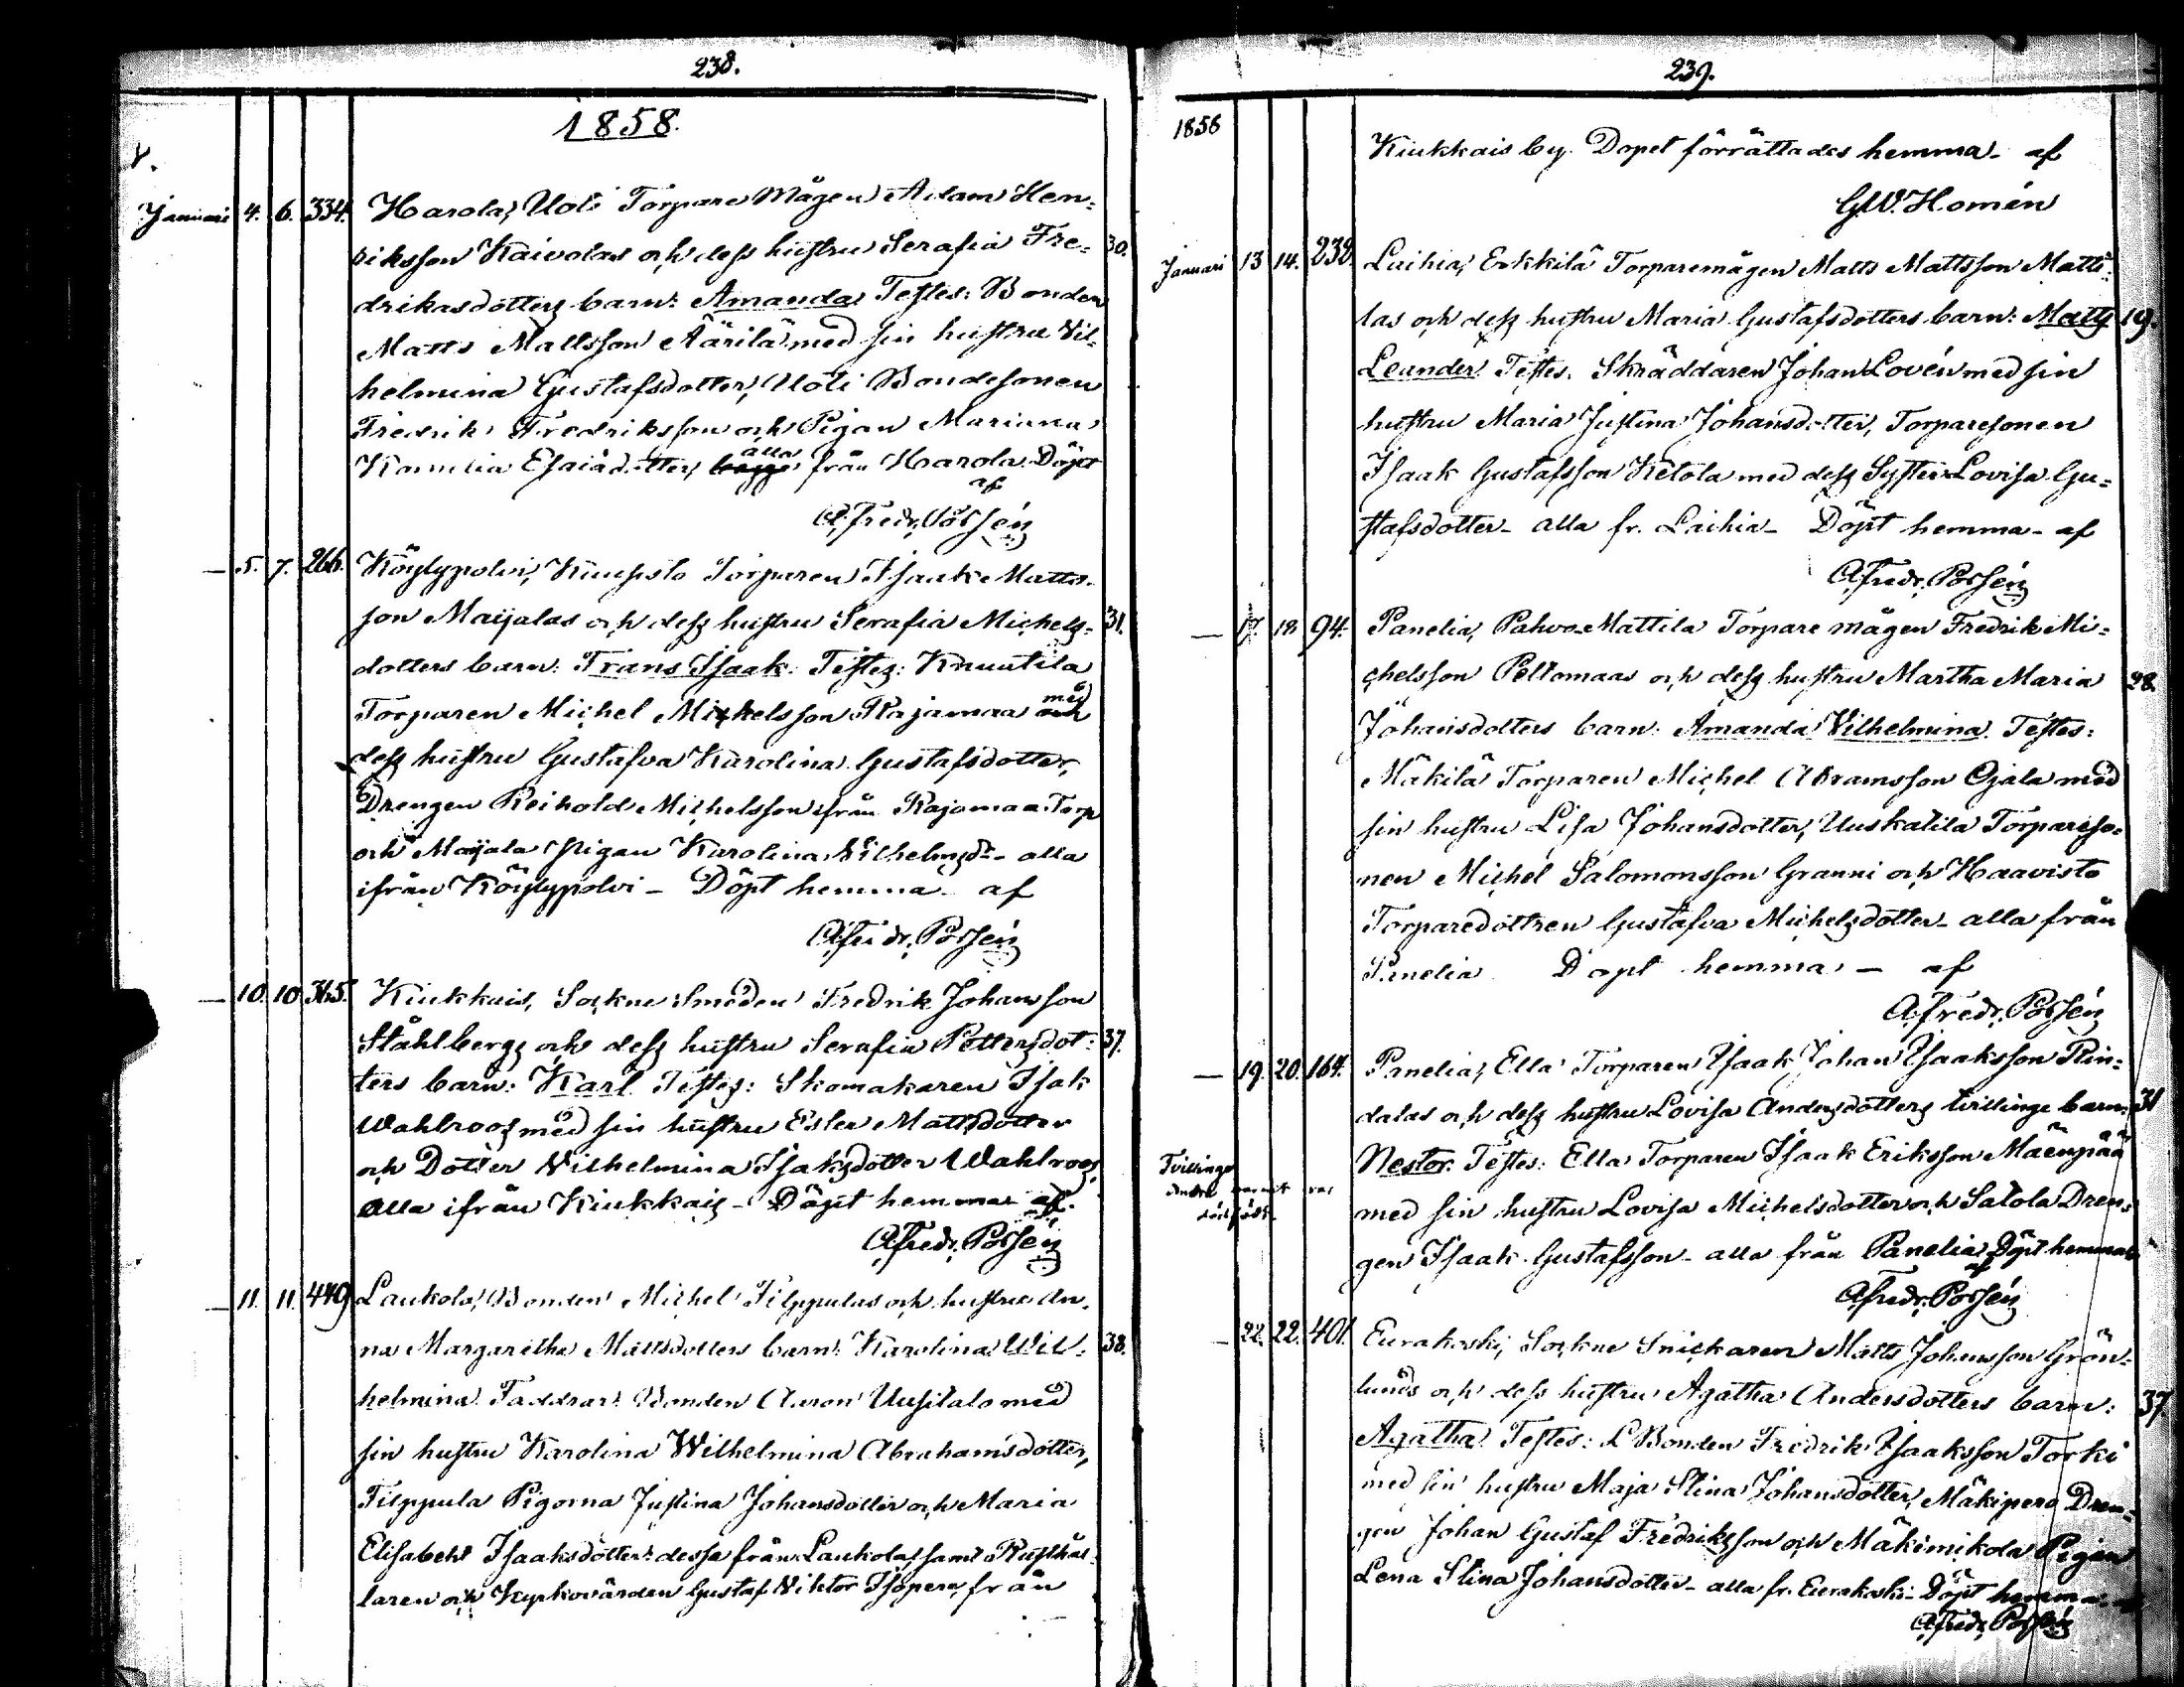 238.
1858.
Januari 4. 6. 334. Harola, Uoti Torpare Mågen Adam Hen-
riksson Kaivolas och dess hustru Serafia Fre- 30.
drikasdotters barn: Amanda Testes: Bonden
Matts Mattsson Äärilä med sin hustru Vil-
helmina Gustafsdotter, Uoti Bondesonen
Fredrik Fredriksson och Pigan Marianna
Kornelia Esaiædotter, alla från Harola. Döpt
af
A. Fredr. Possén
— 5. 7. 266. Köylypolvi, Knupsto Torparen Isaak Matts-
son Maijalas och dess hustru Serafia Michels- 31.
dotters barn: Frans Isaak. Testes: Knuutila
Torparen Michel Michelsson Rajamaa med
dess hustru Gustafva Karolina Gustafsdotter,
Drengen Reihold Michelsson ifrån Rajamaa Torp
och Maijala Pigan Karolina Vilhelmsdr - alla
ifrån Köylypolvi - Döpt hemma af
A. Fredr. Possén
— 10. 10. 365. Kiukkais, Sockne Smeden Fredrik Johansson
Ståhlbergs och dess hustru Serafia Pettersdot- 37.
ters barn: Karl Testes: Skomakaren Isak
Wahlroos med sin hustru Ester Mattsdotter
och Dotter Vilhelmina Isaksdotter Wahlroos,
alla ifrån Kiukkais - Döpt hemma af.
A. Fredr. Possén
— 11. 11. 449 Laukola, Bonden Michel Filppulas och hustru An-
na Margaretha Mattsdotters barn: Karolina Wil- 38.
helmina. Faddrar: Bonden Aaron Uusitalo med
sin hustru Karolina Wilhelmina Abrahamsdotter,
Filppula Pigorna Justina Johansdotter och Maria
Elisabeht Isaaksdotter: dessa från Laukola, samt Rusthål-
laren och Kyrkovärden Gustaf Viktor Isopere, från
239.
1858
Kiukkais by. Dopet förrättades hemma - af
G.W. Homén
Januari 13 14. 238. Laihia, Erkkilä Torparemågen Matts Mattsson Matti-
las och dess hustru Maria Gustafsdotters barn: Matts 19.
Leander. Testes. Skräddaren Johan Lovén med sin
hustru Maria Justina Johansdotter, Torparesonen
Isaak Gustafsson Ketola med dess Syster Lovisa Gu-
stafsdotter - alla fr. Laihia - Döpt hemma - af
A. Fredr. Possén
— 17. 18. 94. Panelia, Pahvo-Mattila Torpare mågen Fredrik Mi-
chelsson Peltomaas och dess hustru Martha Maria 28.
Johansdotters barn: Amanda Vilhelmina. Testes:
Mäkilä Torparen Michel Abramsson Ojala med
sin hustru Lisa Johansdotter, Uuskatila Torpareso-
nen Michel Salomonsson Granni och Haavisto
Torparedottren Gustafva Michelsdotter - alla från
Panelia Döpt hemma - af
A. Fredr. Possén
— 19. 20. 164. Panelia, Ella Torparen Isaak Johan Isaaksson Rin-
dalas och dess hustru Lovisa Andersdotters tvillinge barn: 31
Tvillinge
andra barnet var
dödfödt.
Nestor. Testes: Ella Torparen Isaak Eriksson Mäenpää
med sin hustru Lovisa Michelsdotter och Satola Dren-
gen Isaak Gustafsson - alla från Panelia, Döpt hemma
af
A. Fredr. Possén
— 22. 22. 401. Eurakoski, Sockne Snickaren Matts Johansson Grön-
lunds och dess hustru Agatha Andersdotters barn: 37.
Agatha. Testes: L Bonden Fredrik Isaaksson Torki
med sin hustru Maja Stina Johansdotter, Mäkipere Dren-
gen Johan Gustaf Fredriksson och Mäkimikola Pigan
Lena Stina Johansdotter - alla fr. Eurakoski - Döpt hemma
A. Fredr. Possén